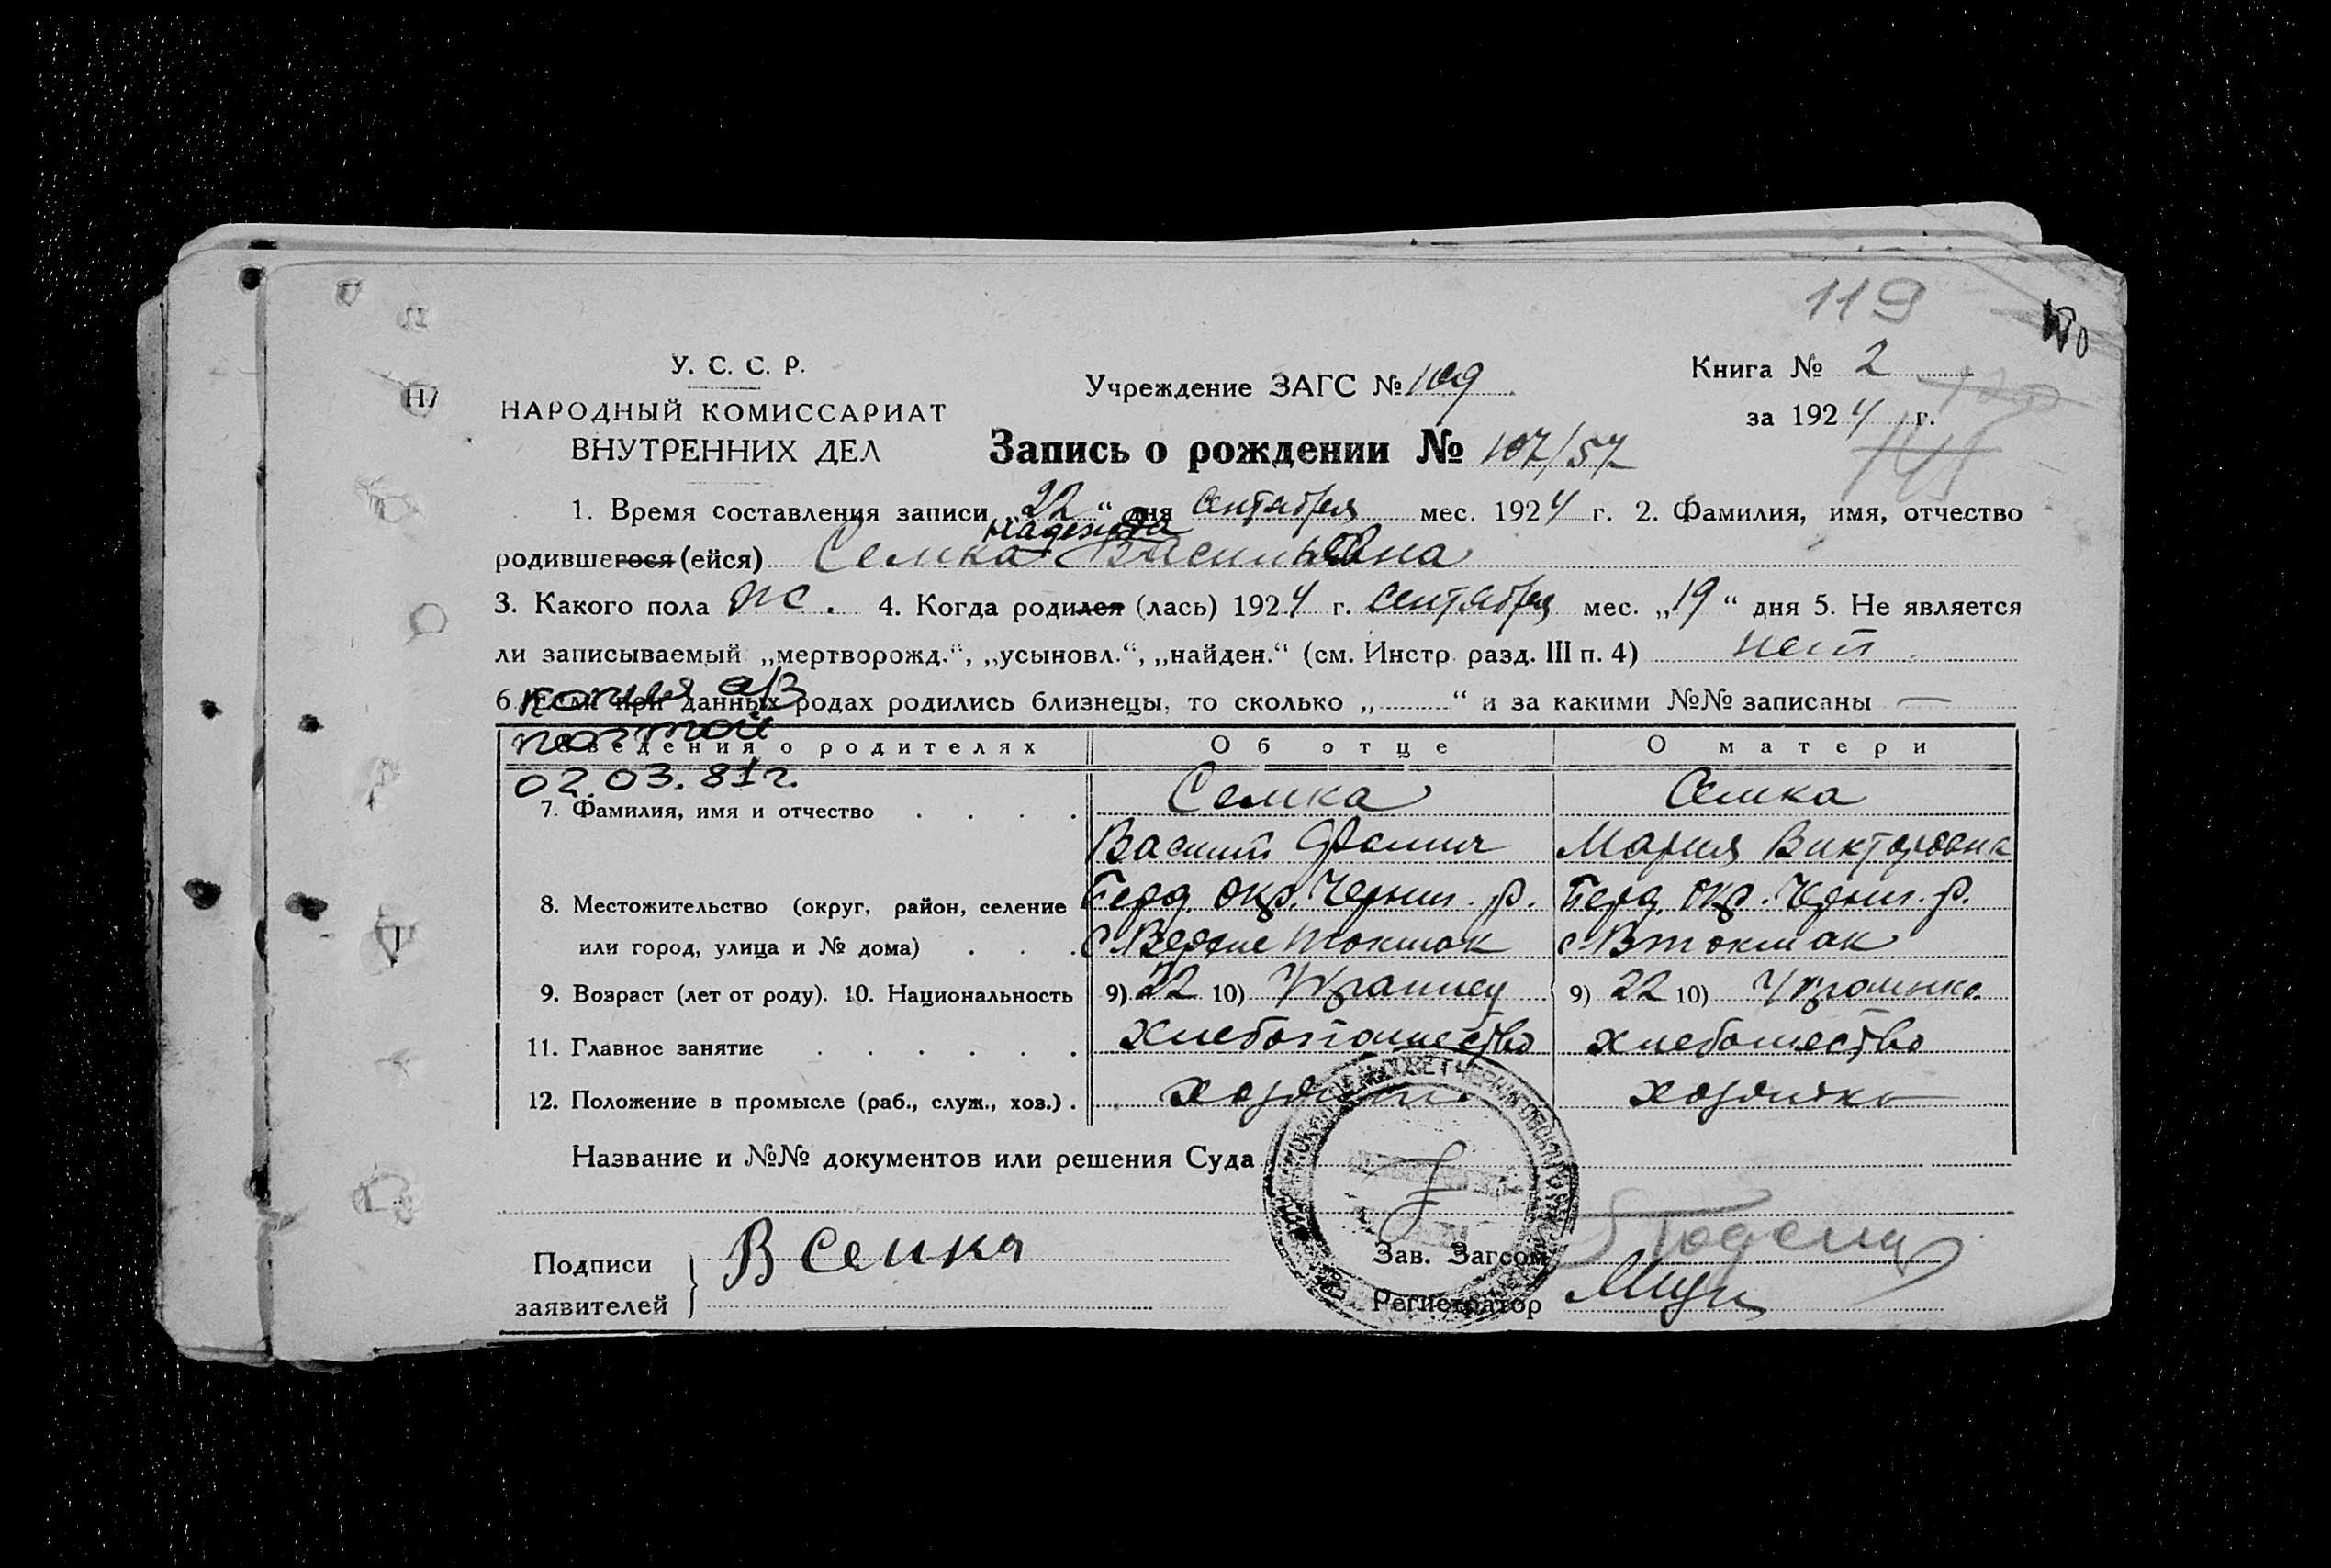 119
У. С. С. Р.
НАРОДНЫЙ КОМИССАРИАТ
ВНУТРЕННИХ ДЕЛ
Учреждение ЗАГС № 109
Книга № 2
за 1924 г.
Запись о рождении № 107/57
1. Время составления записи „22“ дня сентября мес. 1924 г. 2. Фамилия, имя, отчество
Надежда
родившегося (ейся) Семка Васильевна
3. Какого пола ж. 4. Когда родился (лась) 1924 г. сентября мес. „19“ дня 5. Не является
ли записываемый „мертворожд.“, „усыновл.“, „найден.“ (см. Инстр. разд. III п. 4) нет
6. Если при данных родах родились близнецы, то сколько „ “ и за какими №№ записаны —
копия
почтой
02.03.81г.
Сведения о родителях Об отце О матери
7. Фамилия, имя и отчество Семка Семка
Василий Мария Викторовна
8. Местожительство (округ, район, селение Берд. окр. Черниг. р. Берд. окр. Черниг. р.
или город, улица и № дома) с. Верхне Токмак с. В Токмак
9. Возраст (лет от роду). 10. Национальность 9) 22 10) Украинец 9) 22 10) Украинка
11. Главное занятие хлебопашество хлебопашество
12. Положение в промысле (раб., служ., хоз.) хозяин хозяйка
Название и №№ документов или решения Суда
Подписи
заявителей
В Семка
Зав. Загсом
Регистратор